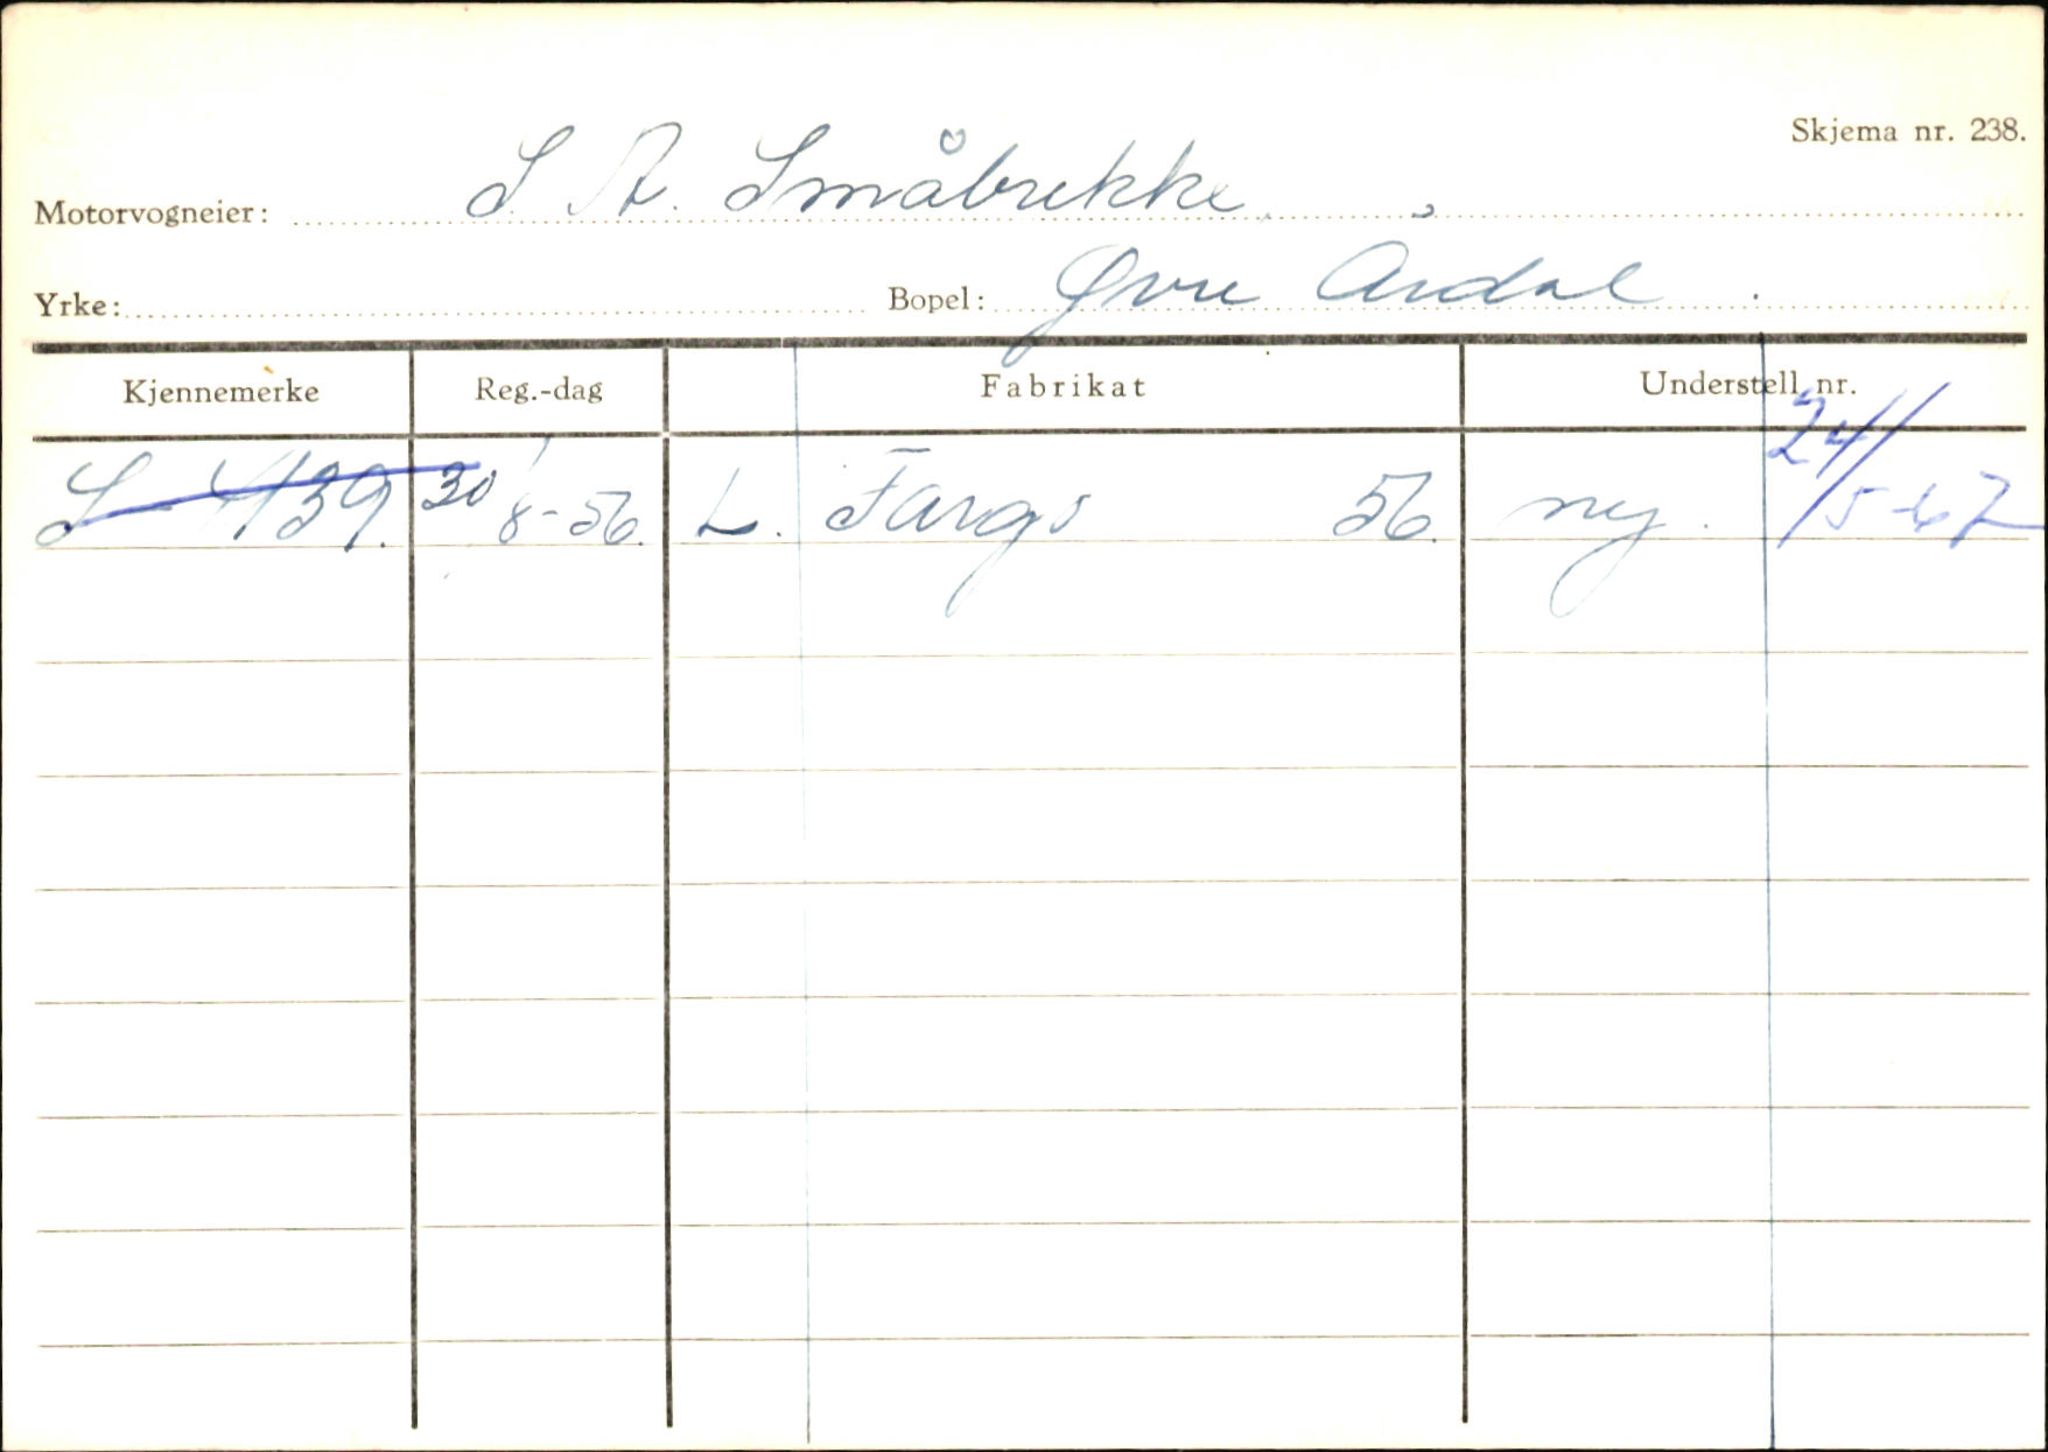 Skjema nr. 238.
Motorvogneier: S. A. Småbrekke.
Yrke: Bopel: Øvre Årdal
Kjennemerke Reg.-dag Fabrikat Understell nr.
S-4139. 30/8-56. L. Fargo 56. ny. 24/5-67